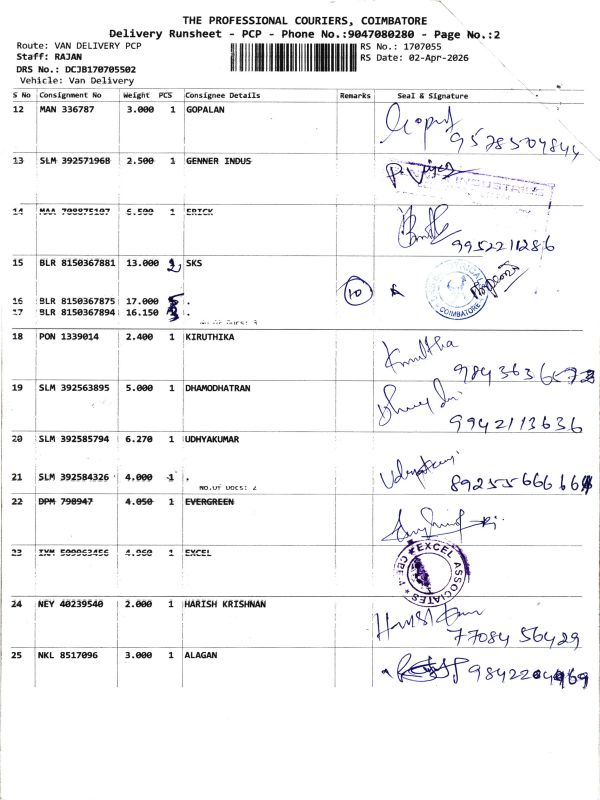 THE PROFESSIONAL COURIERS, COIMBATORE
Delivery Runsheet - PCP - Phone No.:9047080280 - Page No.:2
Route: VAN DELIVERY PCP RS No.: 1707055
Staff: RAJAN RS Date: 02-Apr-2026
DRS No.: DCJB170705502
Vehicle: Van Delivery
S No Consignment No Weight PCS Consignee Details Remarks Seal & Signature
12 MAN 336787 3.000 1 GOPALAN
9578504844
13 SLM 392571968 2.500 1 GENNER INDUS
14 MAA 708875107 6.500 1 ERICK
9952211286
15 BLR 8150367881 13.000 2 SKS
10
COIMBATORE
16 BLR 8150367875 17.000 .
17 BLR 8150367894 16.150 .
No.Of Docs: 3
18 PON 1339014 2.400 1 KIRUTHIKA
19 SLM 392563895 5.000 1 DHAMODHATRAN
9942113636
20 SLM 392585794 6.270 1 UDHYAKUMAR
21 SLM 392584326 4.000 1 .
No.Of Docs: 2
22 DPM 798947 4.050 1 EVERGREEN
23 4.960 1 EXCEL
EXCEL ASSOCIATES
24 NEY 40239540 2.000 1 HARISH KRISHNAN
7708456429
25 NKL 8517096 3.000 1 ALAGAN